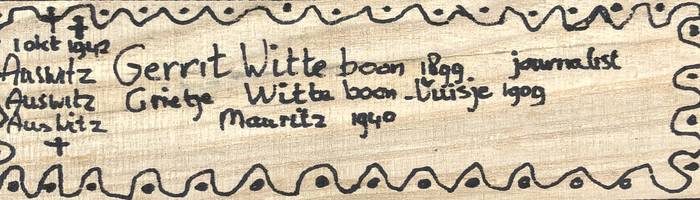 1 okt 1942
Auswitz Gerrit Witte boon 1899 journalist
Auswitz Grietje Witte boon - Luisje 1909
Auswitz Mauritz 1940